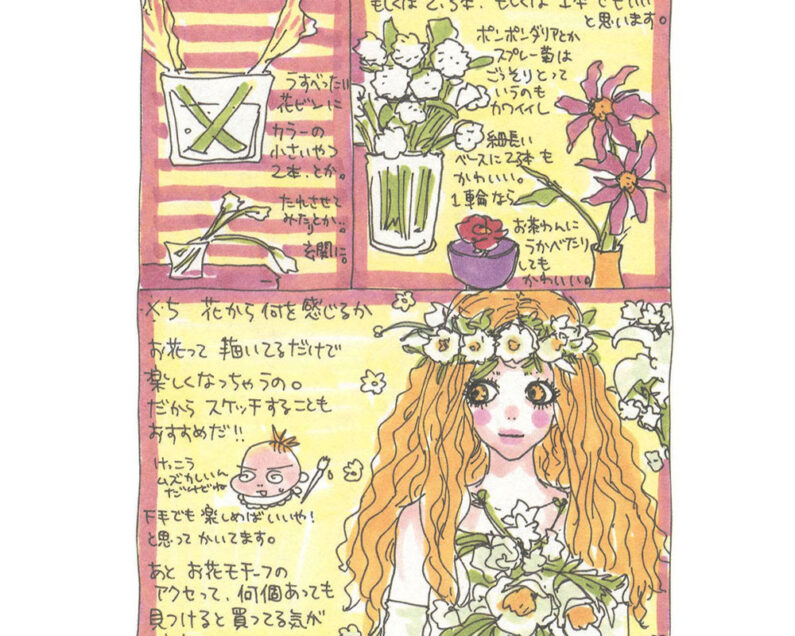 うすべったい
花ビンに
カラーの
小さいやつ
2本.とか。
たれさせて
みたりとか…。
玄関に。
もしくは 2,3本、もしくは 1本でもいい
と思います。
ポンポンダリアとか
スプレー菊は
ごっそりとって
いうのも
カワイイし
細長い
ベースに2.3本も
かわいい。
1輪なら
お茶わんに
うかべたり
しても
かわいい。
・×・5 花から何を感じるか
お花って 描いてるだけで
楽しくなっちゃうの。
だから スケッチすることも
おすすめだ!!
けっこう
ムズかしいん
だけどね
下手でも楽しめばいいや!
と思って かいてます。
あと お花モチーフの
アクセって、何個あっても
見つけると買ってる気が